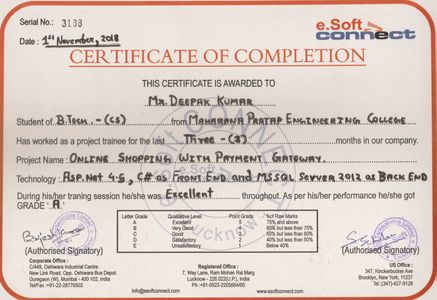 Serial No.: 3138
e.Soft
connect
Date: 1st November, 2018
CERTIFICATE OF COMPLETION
THIS CERTIFICATE IS AWARDED TO
Mr. Deepak Kumar
Student of B.Tech. - (CS) from Maharana Pratap Engineering College
Has worked as a project trainee for the last Three - (3) months in our company.
Project Name: Online Shopping With Payment Gateway.
Technology: Asp.Net 4.5, C# as Front End and MSSQL Server 2012 as Back End
During his/her traning session he/she was Excellent throughout. As per his/her performance he/she got
GRADE 'A'
Letter Grade Qualitative Level Point Grade %of Raw Marks
A Excellent 5 75% and above
B Very Good 4 60% but less than 75%
C Good 3 50% but less than 60%
D Satisfactory 2 40% but less than 50%
E Unsatisfactory Below 40%
(Authorised Signatory)
(Authorised Signatory)
Corporate Office :
C/449, Oshiwara Industrial Centre
New Link Road, Opp. Oshiwara Bus Depot.
Goregaon (W), Mumbai - 400 102, India
Tel/Fax: +91-22-26776502
Registered Office :
7, Way Lane, Ram Mohan Rai Marg
Lucknow - 226 022(U.P.), India
Ph.: +91-0522-2205664/65
info@esoftconnect.com www.esoftconnect.com
US Office :
347, Knickerbocker Ave
Brooklyn, New York, 11237
Tel. (347)-427-0128